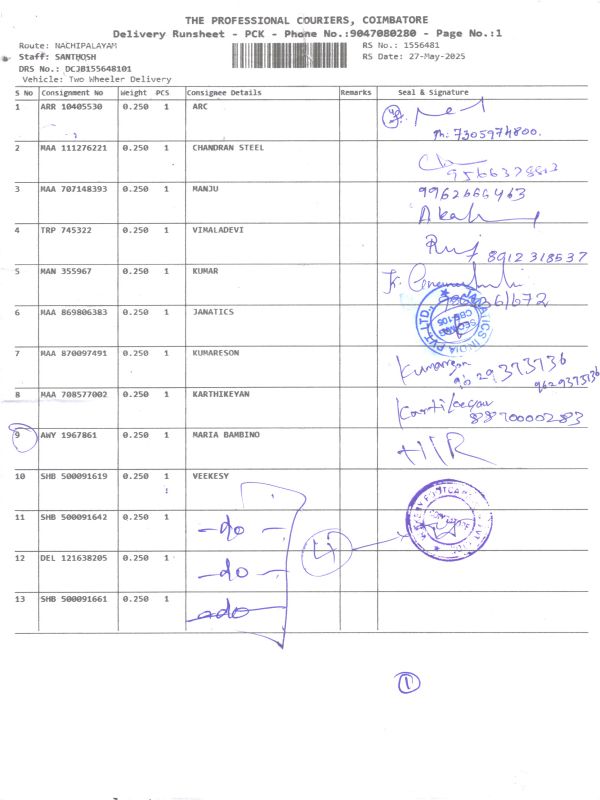 THE PROFESSIONAL COURIERS, COIMBATORE
Delivery Runsheet - PCK - Phone No.:9047080280 - Page No.:1
Route: NACHIPALAYAM
RS No.: 1556481
Staff: SANTHOSH
RS Date: 27-May-2025
DRS No.: DCJB155648101
Vehicle: Two Wheeler Delivery
S No Consignment No Weight PCS Consignee Details Remarks Seal & Signature
1 ARR 10405530 0.250 1 ARC
Ph: 7305974800.
2 MAA 111276221 0.250 1 CHANDRAN STEEL
3 MAA 707148393 0.250 1 MANJU 9962666463
Akah
4 TRP 745322 0.250 1 VIMALADEVI
8912318537
5 MAN 355967 0.250 1 KUMAR
6 MAA 869806383 0.250 1 JANATICS
JANATICS INDIA PVT. LTD.
7 MAA 870097491 0.250 1 KUMARESON Kumareson
9629373736
9629373736
8 MAA 708577002 0.250 1 KARTHIKEYAN Kartikeyan
8870000283
9 AWY 1967861 0.250 1 MARIA BAMBINO
10 SHB 500091619 0.250 1 VEEKESY
11 SHB 500091642 0.250 1 -do-
12 DEL 121638205 0.250 1 -do-
13 SHB 500091661 0.250 1 -do-
4
1